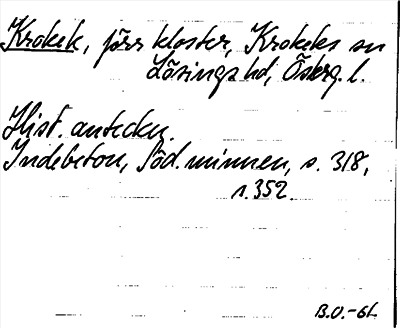 Krokek, förr kloster, Krokeks sn
Lösings hd, Östergl.
Hist. anteckn.
Indebetou, Söd. minnen, s. 318,
s. 352
B.O.-61.